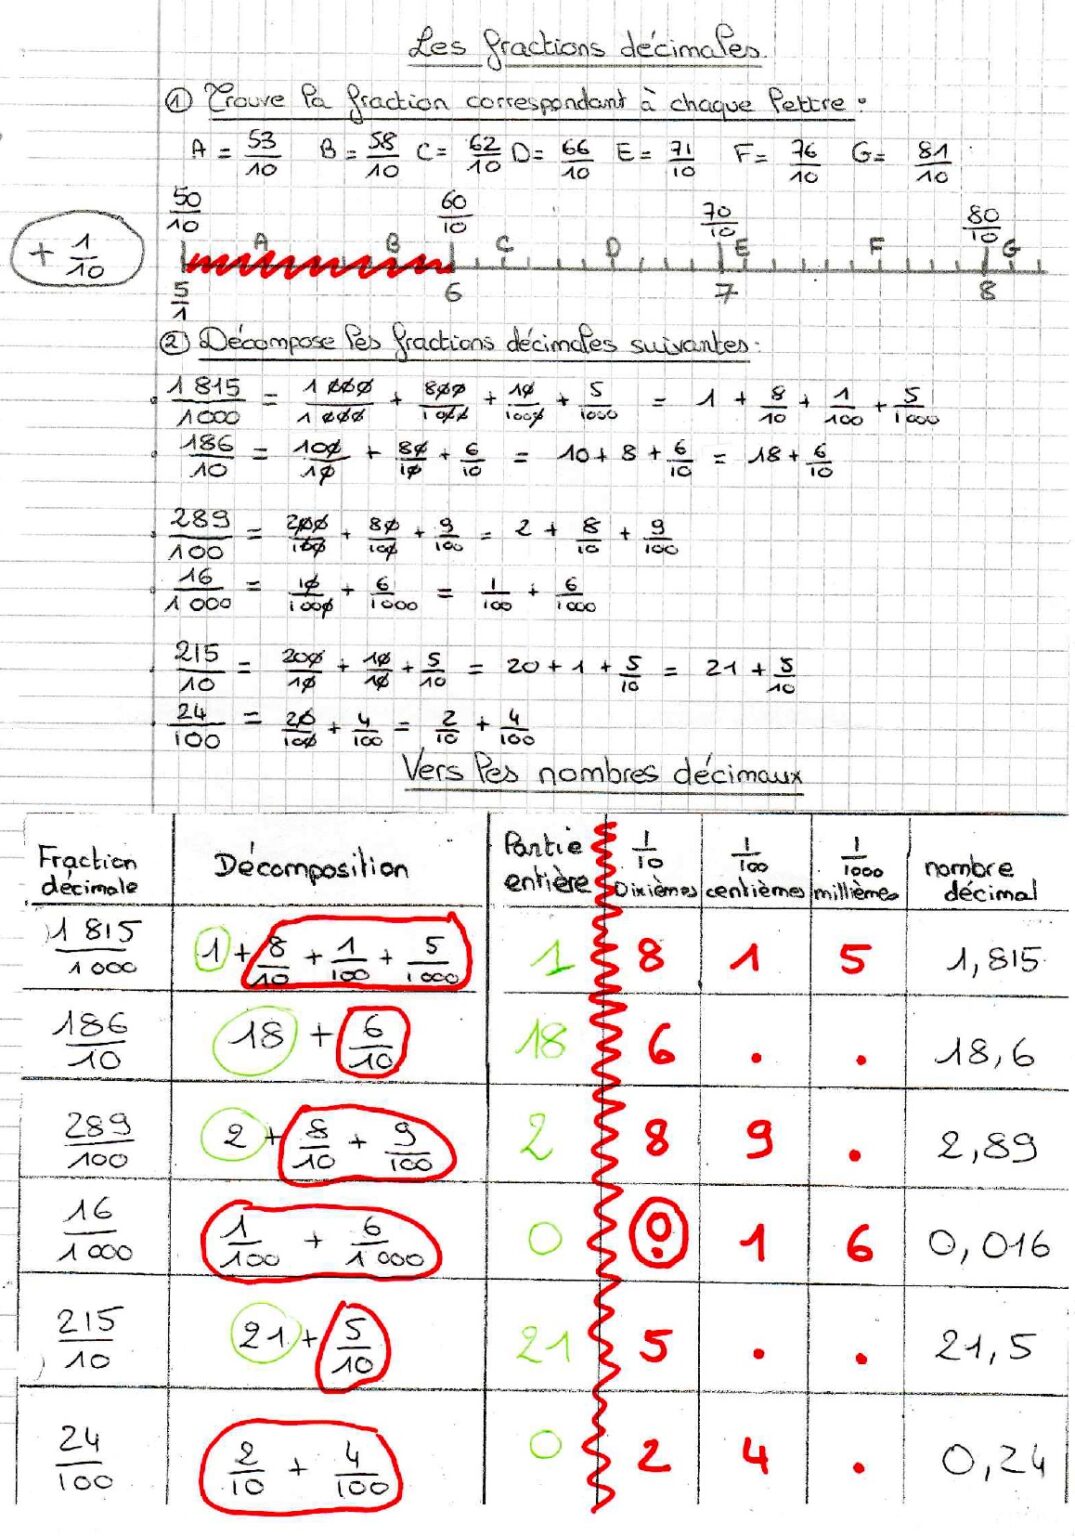 Les fractions décimales.
① Trouve la fraction correspondant à chaque lettre.
A = 53/10 B = 58/10 C = 62/10 D = 66/10 E = 71/10 F = 76/10 G = 81/10
50/10 60/10 70/10 80/10
+ 1/10
A B C D E F G
5/1 6 7 8
② Décompose les fractions décimales suivantes:
1 815/1000 = 1 000/1 000 + 800/1000 + 10/1000 + 5/1000 = 1 + 8/10 + 1/100 + 5/1000
186/10 = 100/10 + 80/10 + 6/10 = 10 + 8 + 6/10 = 18 + 6/10
289/100 = 200/100 + 80/100 + 9/100 = 2 + 8/10 + 9/100
16/1 000 = 10/1000 + 6/1000 = 1/100 + 6/1000
215/10 = 200/10 + 10/10 + 5/10 = 20 + 1 + 5/10 = 21 + 5/10
24/100 = 20/100 + 4/100 = 2/10 + 4/100
Vers les nombres décimaux
Fraction décimale Décomposition Partie entière 1/10 Dixièmes 1/100 centièmes 1/1000 millièmes nombre décimal
1 815/1000 1 + 8/10 + 1/100 + 5/1000 1 8 1 5 1,815
186/10 18 + 6/10 18 6 . . 18,6
289/100 2 + 8/10 + 9/100 2 8 9 . 2,89
16/1 000 1/100 + 6/1 000 0 0 1 6 0,016
215/10 21 + 5/10 21 5 . . 21,5
24/100 2/10 + 4/100 0 2 4 . 0,24